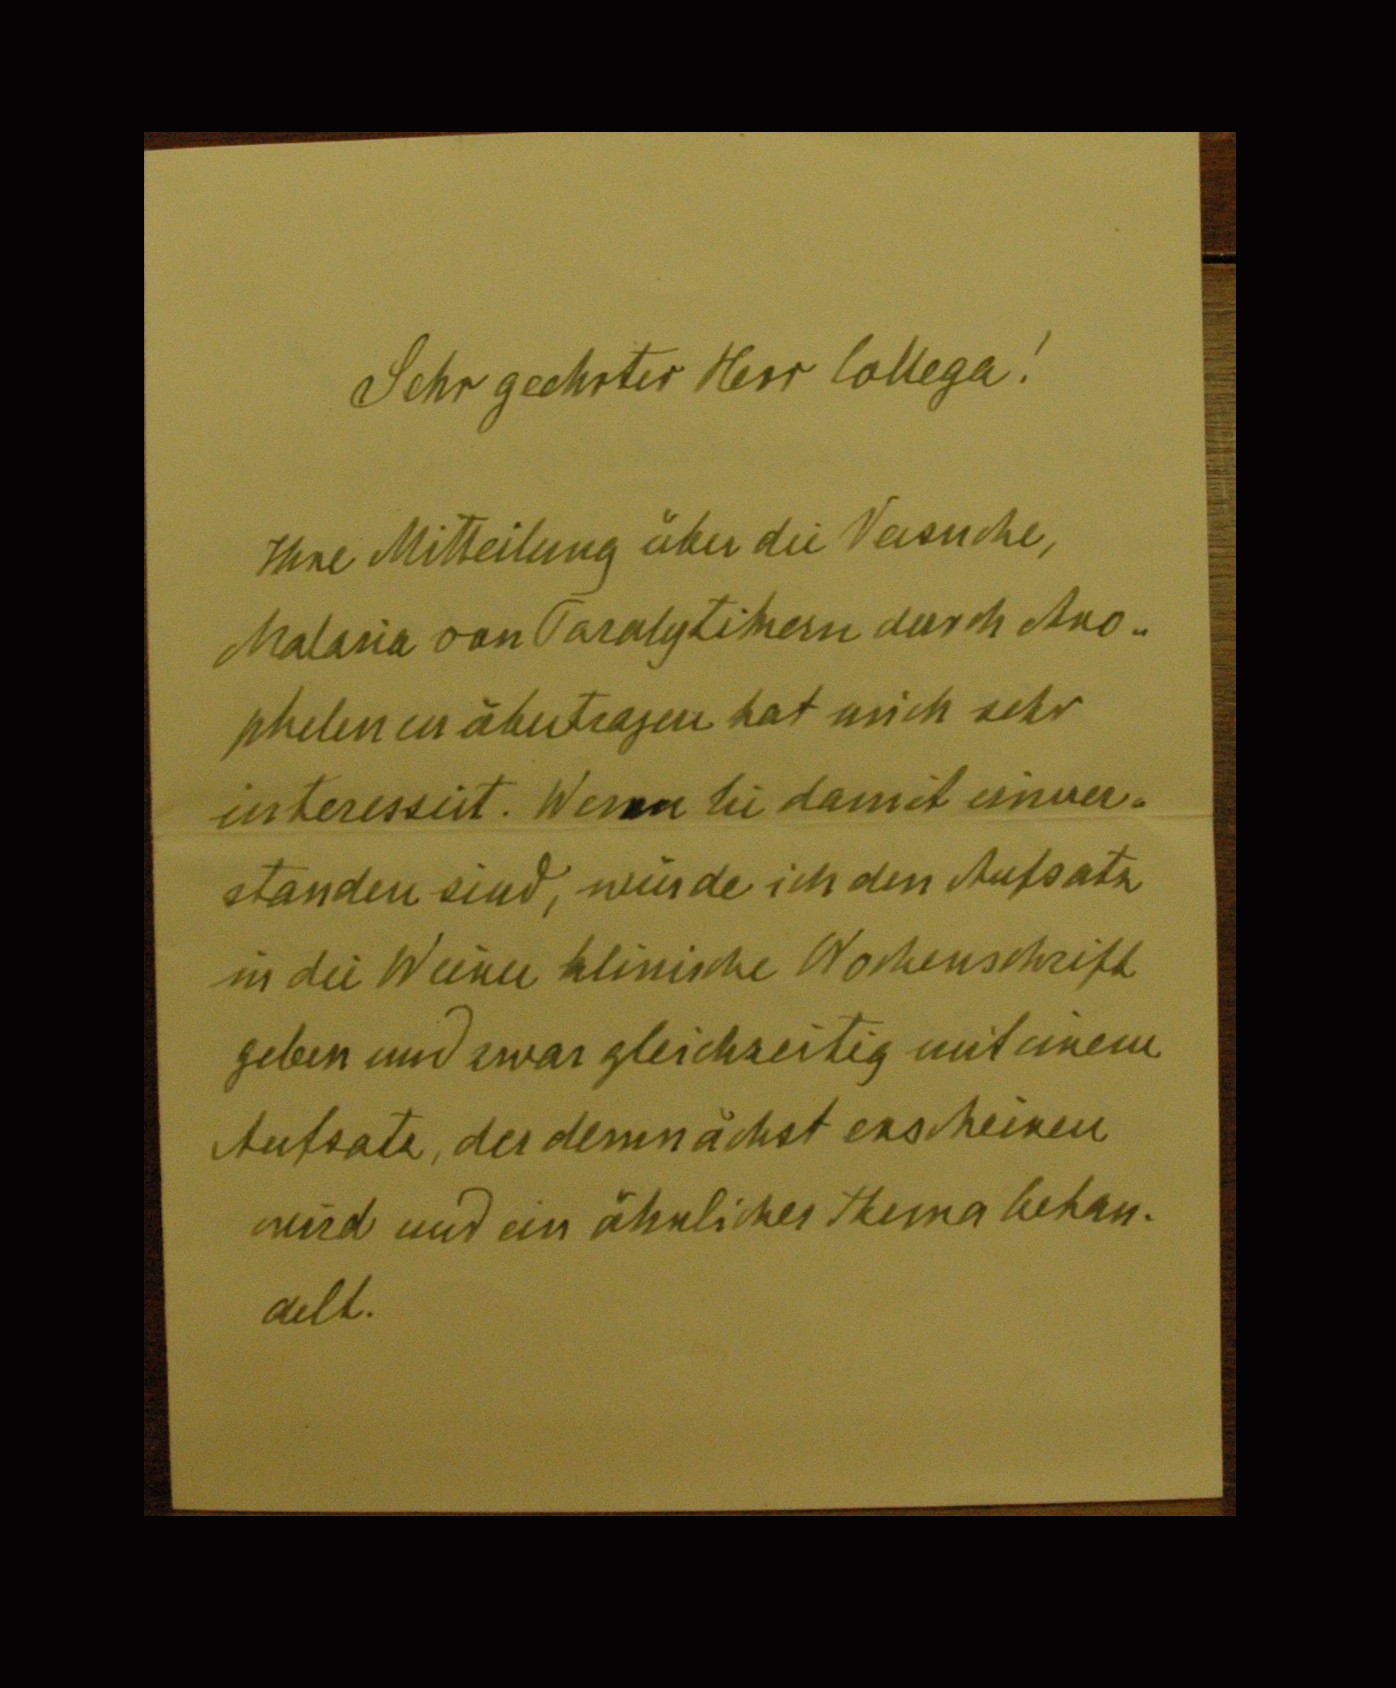 Sehr geehrter Herr Collega!
Ihre Mitteilung über die Versuche,
Malaria von Paralytikern durch Ano-
phelen zu übertragen hat mich sehr
interessiert. Wenn Sie damit einver-
standen sind, würde ich den Aufsatz
in die Wiener klinische Wochenschrift
geben und zwar gleichzeitig mit einem
Aufsatz, der demnächst erscheinen
wird und ein ähnliches Thema behan-
delt.